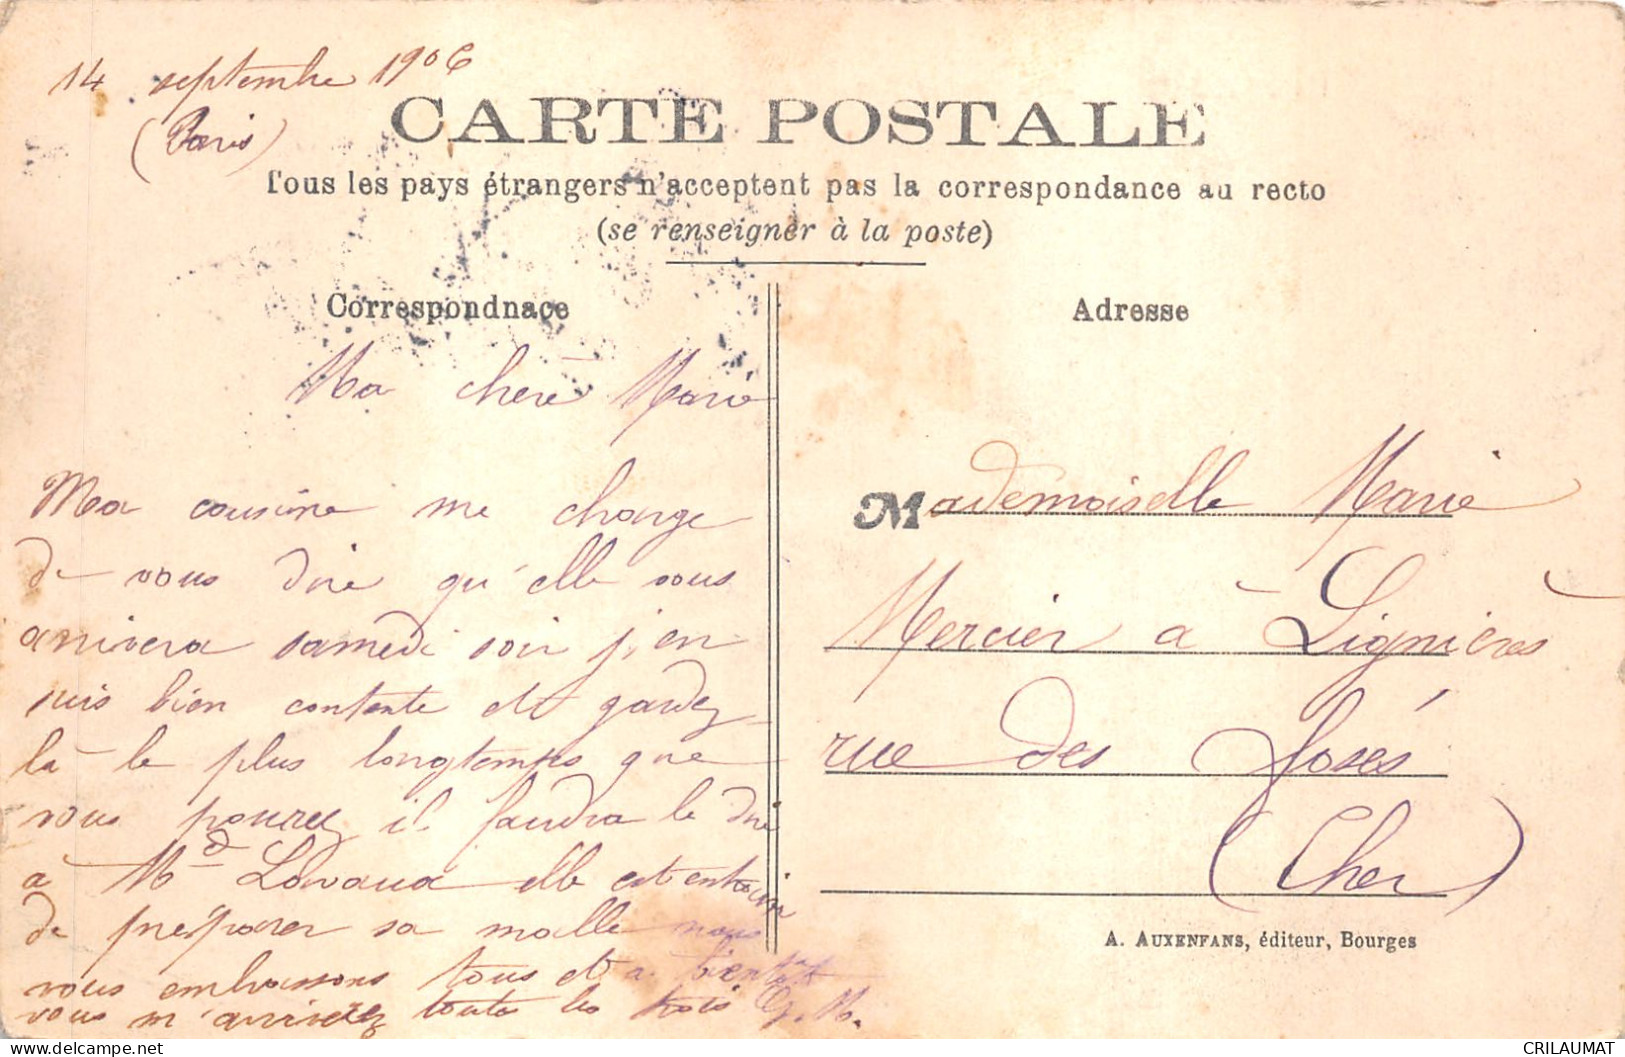 14 septembre 1906
(Paris)
CARTE POSTALE
Tous les pays étrangers n'acceptent pas la correspondance au recto
(se renseigner à la poste)
Correspondnace
Adresse
Ma chère Marie
Ma cousine me charge
de vous dire qu'elle vous
arrivera samedi soir j'en
suis bien contente et gardez
là le plus longtemps que
vous pourez il faudra le dire
à Md Lavaux elle est entrain
de préparer sa malle nous
vous embrassons tous et a bientot
vous m'arrivez toute les trois G. M.
Mademoiselle Marie
Mercier à Lignières
rue des fosés
(Cher)
A. AUXENFANS, éditeur, Bourges
delcampe.net
CRILAUMAT